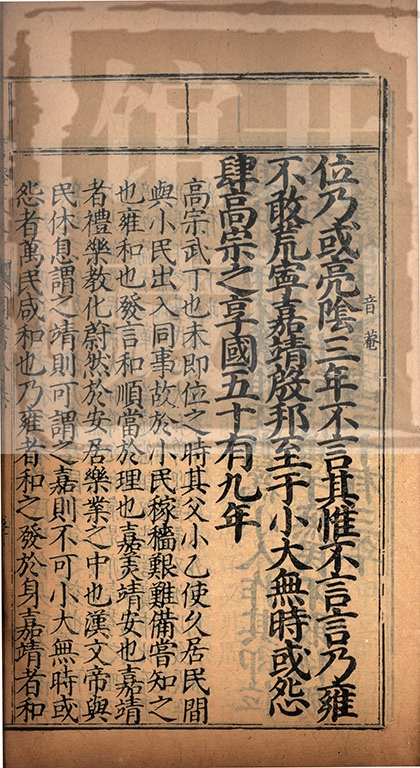 位乃或亮陰三年不言其惟不言言乃雍
音菴
不敢荒寧嘉靖殷邦至于小大無時或怨
肆高宗之享國五十有九年
高宗武丁也未即位之時其父小乙使久居民間
與小民出入同事故於小民稼穡艱難備嘗知之
也雍和也發言和順當於理也嘉美靖安也嘉靖
者禮樂教化蔚然於安居樂業之中也漢文帝與
民休息謂之靖則可謂之嘉則不可小大無時或
怨者萬民咸和也乃雍者和之發於身嘉靖者和